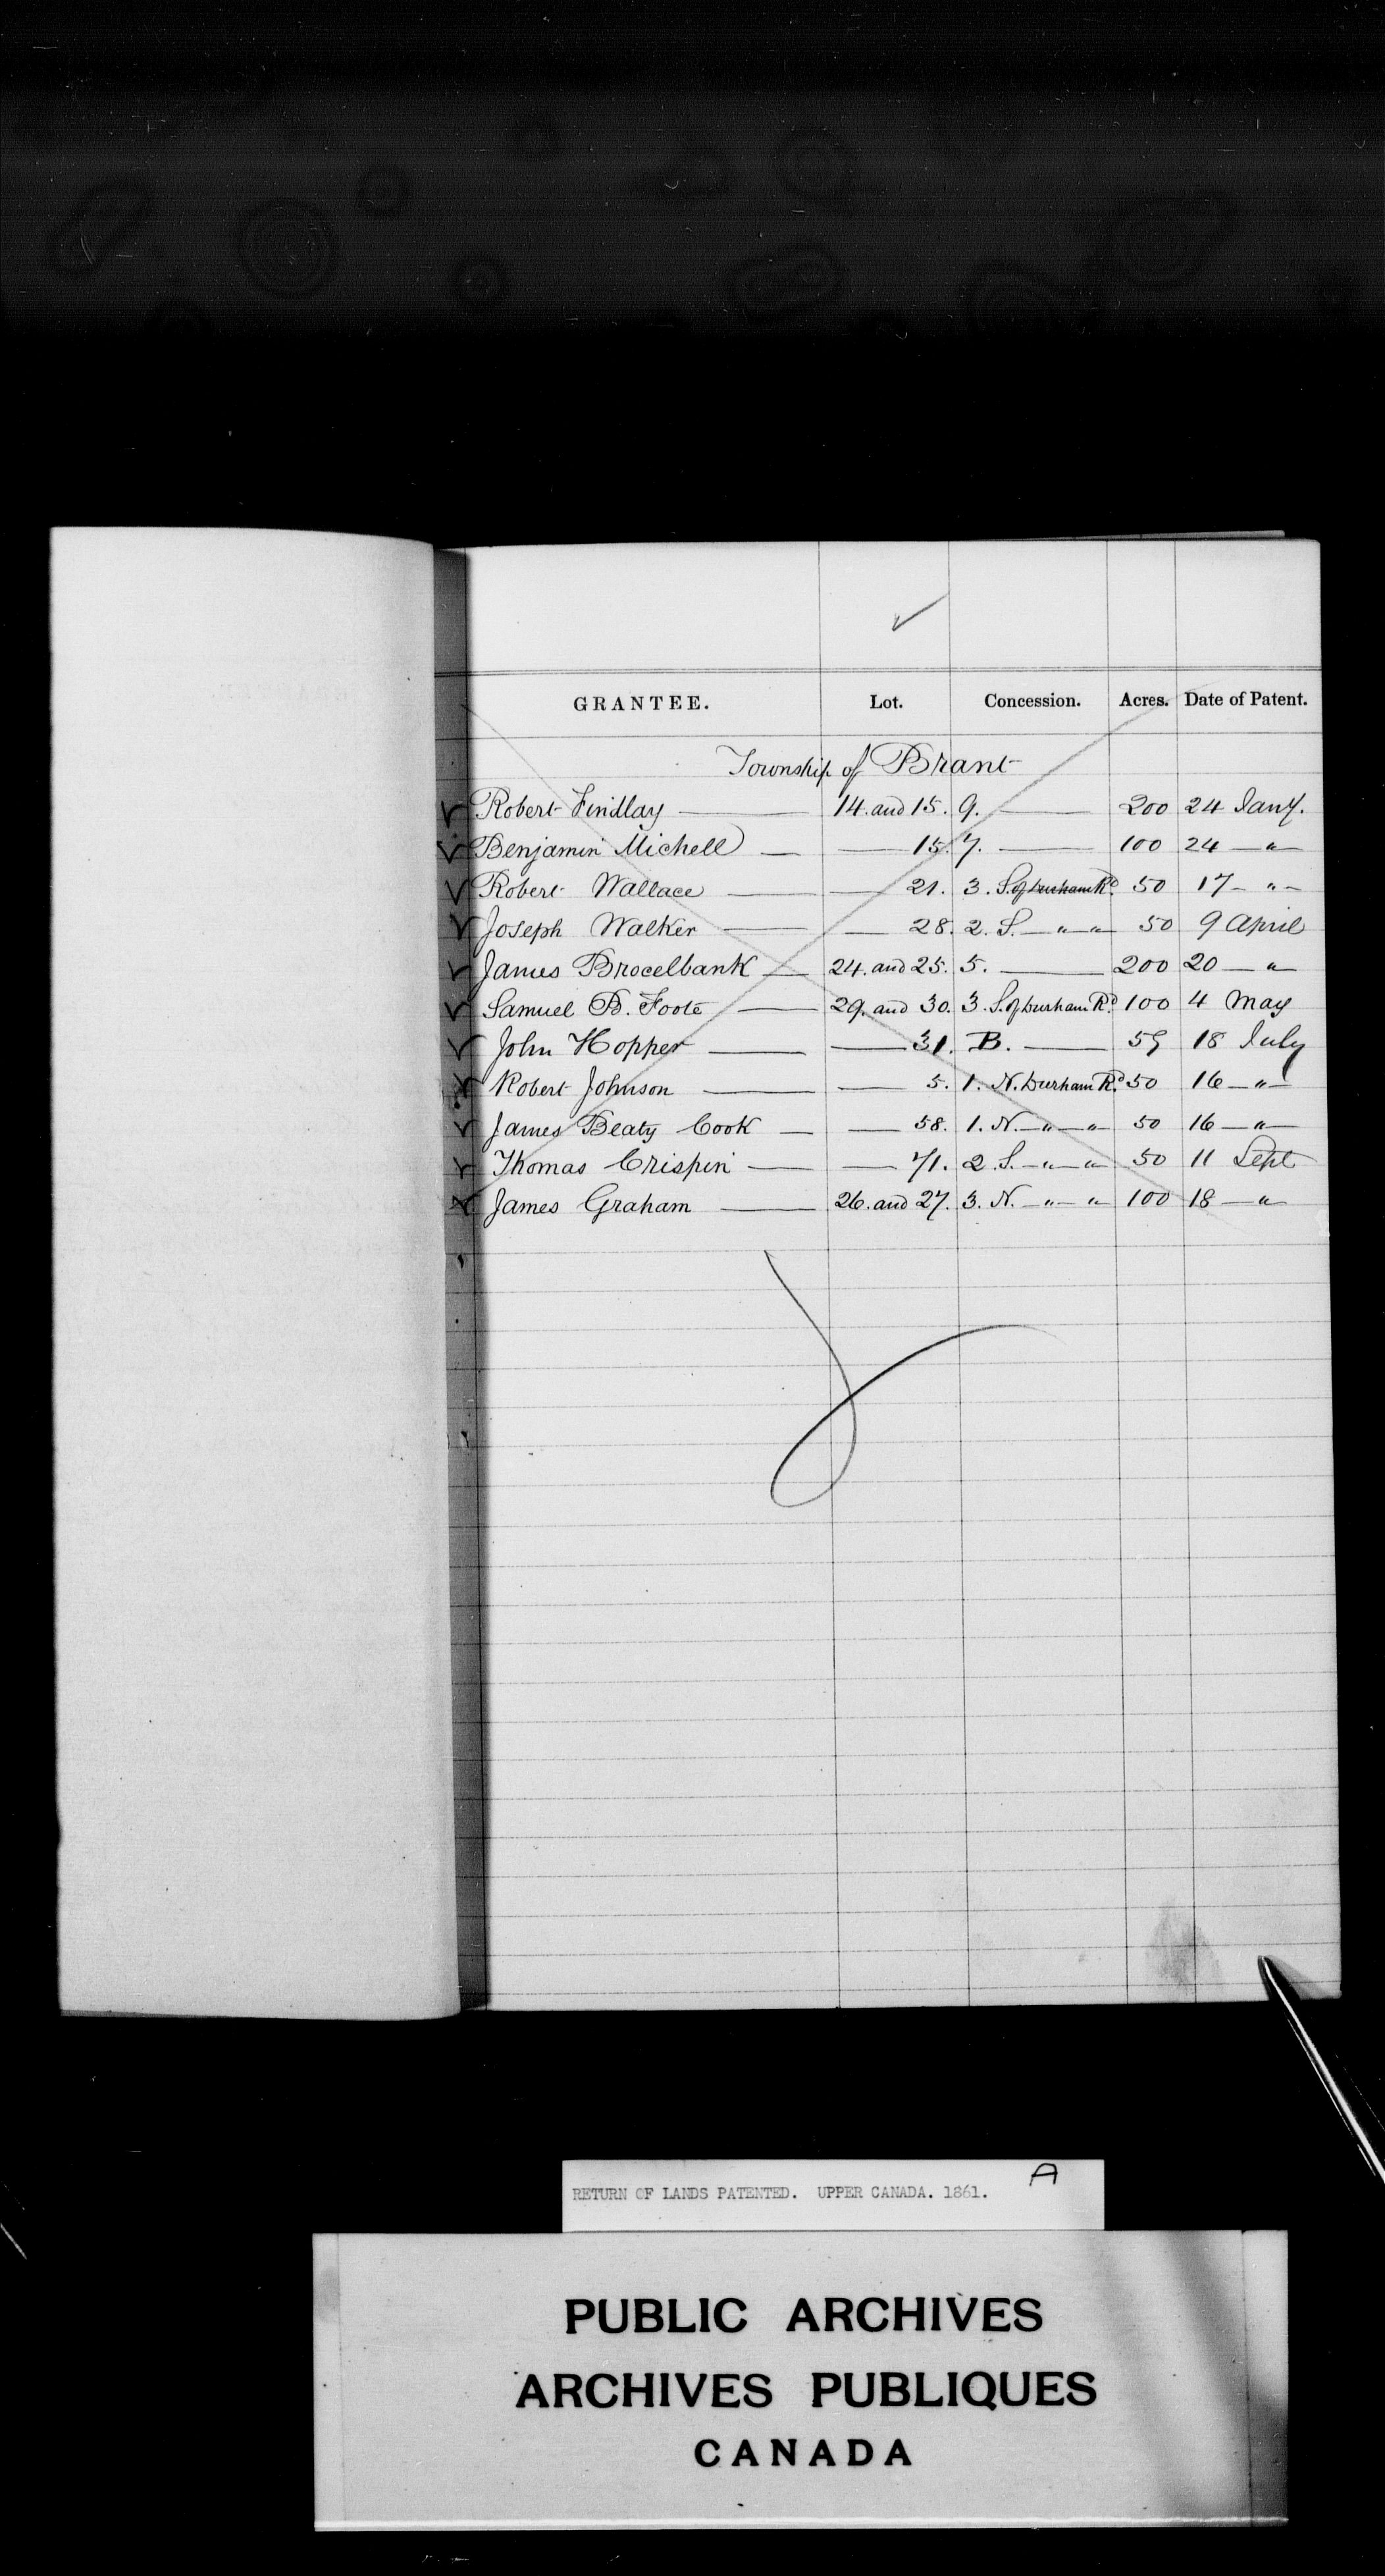 GRANTEE. Lot. Concession. Acres. Date of Patent.
Township of Brant
Robert Findlay — 14. and 15. 9. — 200 24 Jany.
Benjamin Michell — — 15. 7. — 100 24 — " —
Robert Wallace — — 21. 3. S. of Durham Rd. 50 17 — " —
Joseph Walker — — 28. 2. S. — " — " — 50 9 April
James Brocelbank — 24. and 25. 5. — 200 20 — " —
Samuel B. Foote — 29. and 30. 3. S. of Durham Rd. 100 4 May
John Hopper — — 31. B. — 59 18 July
Robert Johnson — — 5. 1. N. Durham Rd. 50 16 — " —
James Beaty Cook — — 58. 1. N. — " — " — 50 16 — " —
Thomas Crispin — — 71. 2 S. — " — " — 50 11 Sept
James Graham — 26. and 27. 3. N. — " — " — 100 18 — " —
RETURN OF LANDS PATENTED. UPPER CANADA. 1861. A
PUBLIC ARCHIVES
ARCHIVES PUBLIQUES
CANADA